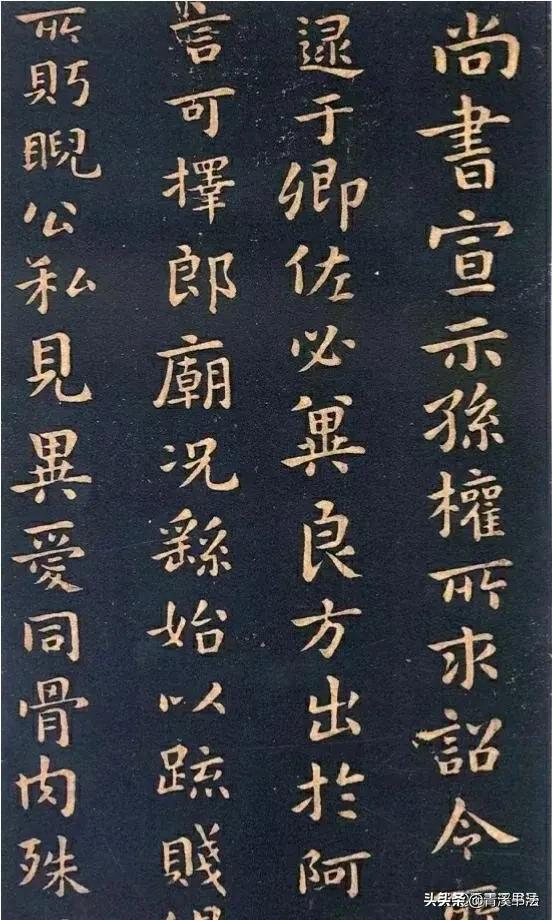 尚書宣示孫權所求詔令
逮于卿佐必冀良方出於阿
言可擇郎廟况繇始以疏賤
所盼睨公私見異愛同骨肉殊
头条 @青溪书法